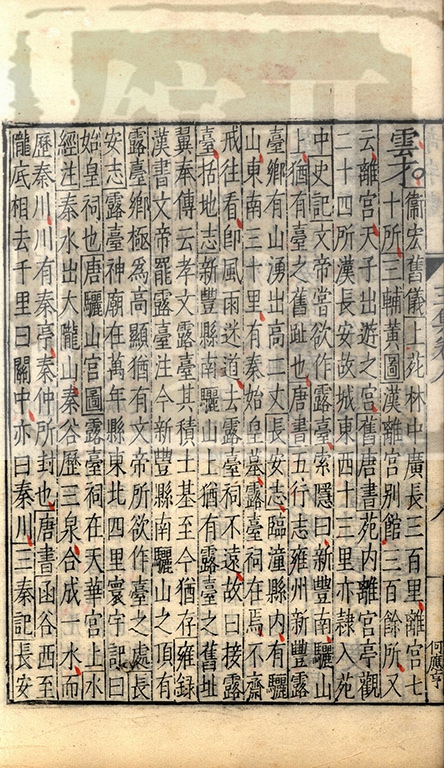 雲不衞宏舊儀上苑林中廣長三百里離宮七
十所三輔黃圖漢離宮别館三百餘所又
云離宮天子出遊之宮舊唐書苑内離宮亭觀
二十四所漢長安故城東西十三里亦隸入苑
中史記文帝嘗欲作露臺索隱曰新豐南驪山
上猶有臺之舊趾也唐書五行志雍州新豐露
臺鄉有山湧出高二丈長安志臨潼縣内有驪
山東南三十里有秦始皇墓露臺祠在焉不齋
戒往看即風雨迷道去露臺祠不遠故曰接露
臺括地志新豐縣南驪山上猶有露臺之舊址
翼奉傳云孝文露臺其積土基至今猶存雍録
漢書文帝罷露臺注今新豐縣南驪山之頂有
露臺鄉極為高顯猶有文帝所欲作臺之處長
安志露臺神廟在萬年縣東北四里寰宇記曰
始皇祠也唐驪山宮圖露臺祠在天華宮上水
經注秦水出大隴山秦谷歷三泉合成一水而
歷秦川川有秦亭秦仲所封也唐書函谷西至
隴底相去千里曰關中亦曰秦川三秦記長安
何應亨